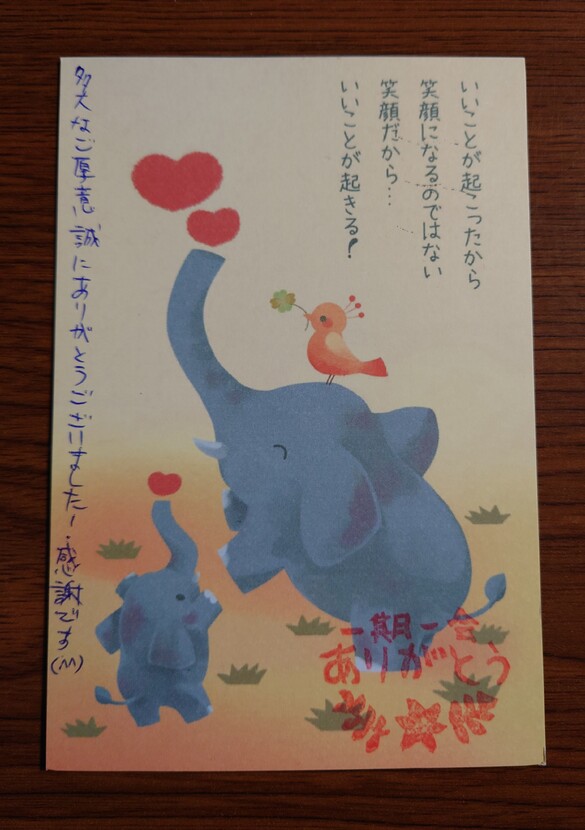 いいことが起こったから
笑顔になるのではない
笑顔だから…
いいことが起きる!
多大なご厚意 誠にありがとうございました!感謝です(^^)
一期一会
ありがとう